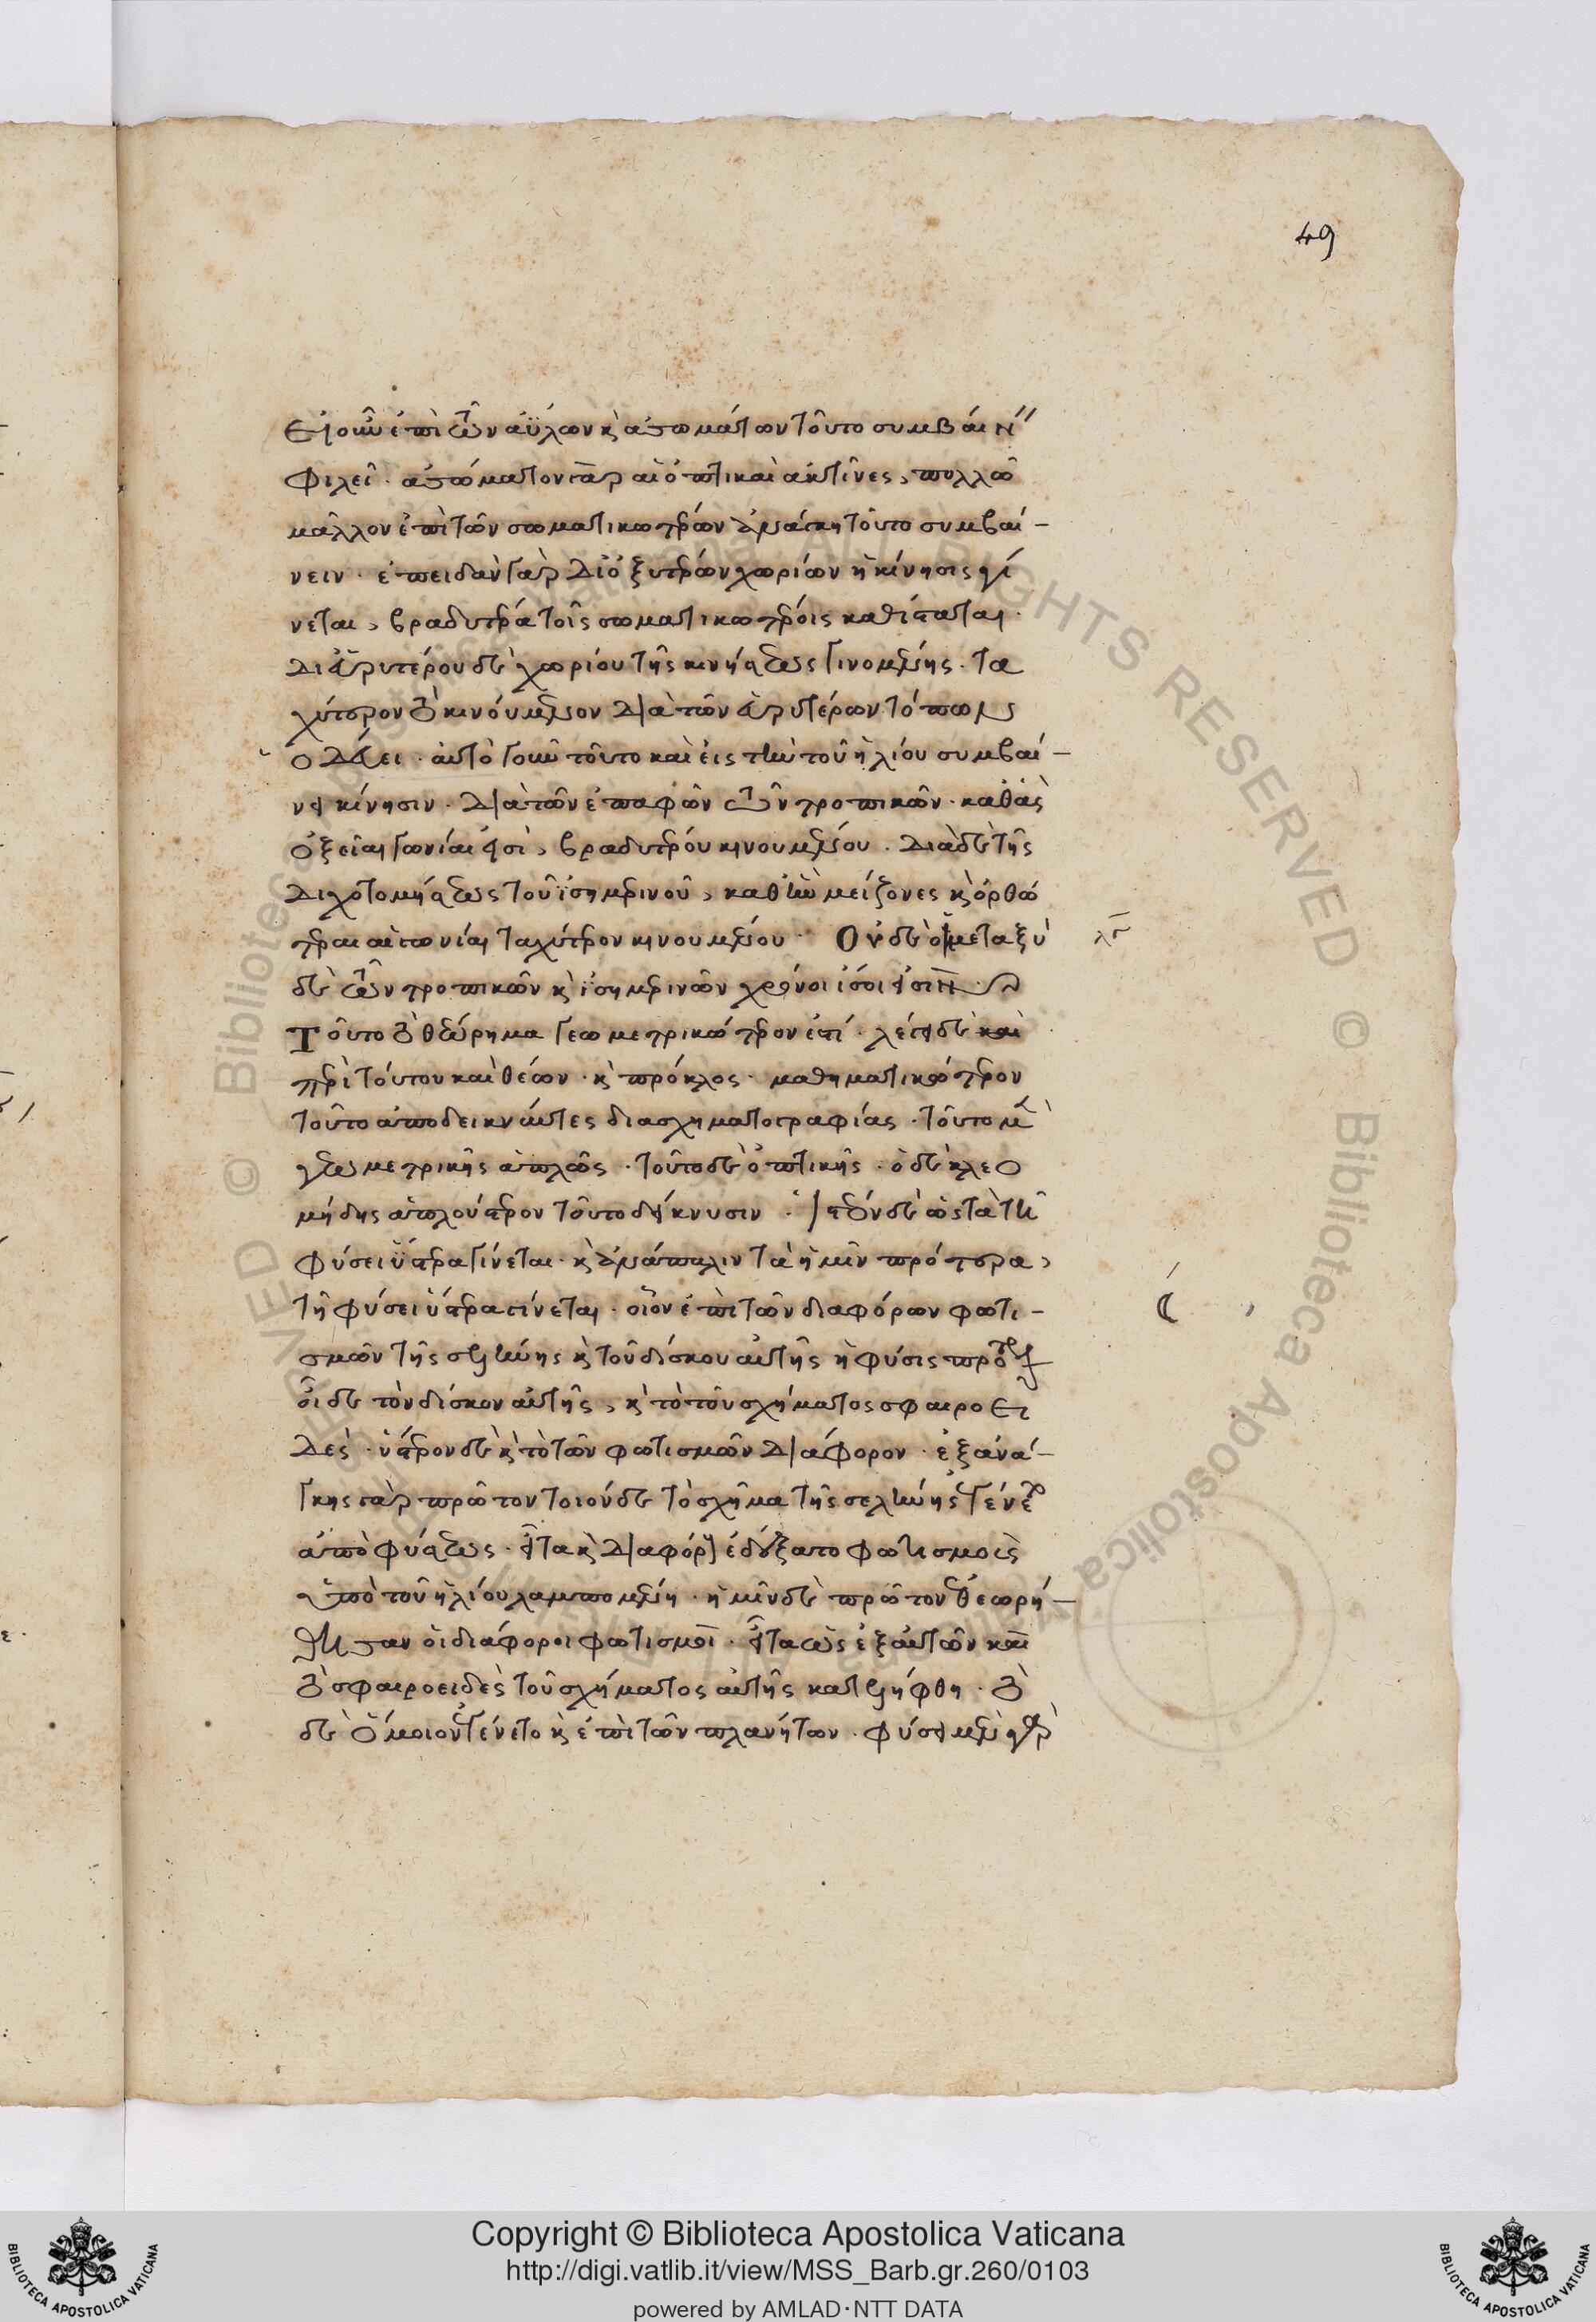 49
Εἰ οὖν ἐπὶ τῶν ἀΰλων κ ἀσωμάτων τοῦτο συμβαίνειν
φιλεῖ · ἀσώματον γὰρ αἱ ὀπτικαὶ ἀκτῖνες, πολλῶ
μᾶλλον ἐπὶ τῶν σωματικωτέρων ἀνάγκη τοῦτο συμβαί-
νειν · ἐπειδὰν γὰρ δι' ὀξυτέρων χωρίων ἡ κίνησις γί
νεται, βραδυτέρα τοῖς σωματικωτέροις καθίσταται ·
δι' εὐρυτέρου δὲ χωρίου τῆς κινήσεως γινομένης · τα
χύτερον τὸ κινούμενον διὰ τῶν εὐρυτέρων τόπων
ὁδεύει · αὐτὸ γοῦν τοῦτο καὶ εἰς τὴν τοῦ ἡλίου συμβαί-
νει κίνησιν · διὰ τῶν ἐπαφῶν τῶν τροπικῶν · καθ' ἃς
ὀξεῖαι γωνίαι εἰσὶ, βραδυτέρου κινουμένου · διὰ δὲ τῆς
διχοτομήσεως τοῦ ἰσημερινοῦ, καθ' ἣν μείζονες κ ὀρθό
τεραι αἱ γωνίαι ταχύτερον κινουμένου · Οὐδὲ οἱ μεταξὺ
δὲ τῶν τροπικῶν κ ἰσημερινῶν χρόνοι ἴσοι εἰσίν
Τοῦτο τὸ θεώρημα γεωμετρικώτερον ἐστί · λέγει δὲ καὶ
περὶ τούτου καὶ θέων · κ πρόκλος · μαθηματικώτερον
τοῦτο ἀποδεικνύντες διασχηματογραφίας · τοῦτο μὲν
γεωμετρικῆς ἁπλῶς · τοῦτο δὲ ὀπτικῆς · ὁ δὲ κλεο
μήδης ἁπλούστερον τοῦτο δείκνυσιν · ἰστέον δὲ ὡς τὰ τῆ
φύσει ὕστερα γίνεται · κ ἀνάπαλιν τὰ ἡμῖν πρότερα,
τῆ φύσει ὕστερα γίνεται · οἷον ἐπὶ τῶν διαφόρων φωτι-
σμῶν τῆς σελήνης κ τοῦ δίσκου αὐτῆς ἡ φύσις πρότερον
οἶδε τὸν δίσκον αὐτῆς, κ τὸ τοῦ σχήματος σφαιροει
δὲς · ὕστερον δὲ κ τὸ τῶν φωτισμῶν διάφορον · ἐξ ἀνά-
γκης γὰρ πρῶτον τοιόνδε τὸ σχῆμα τῆς σελήνης ἐγένετο
ἀπὸ φύσεως · εἶτα κ διαφόρους ἐδέξατο φωτισμοὺς
ὑπὸ τοῦ ἡλίου λαμπομένη · ἡμῖν δὲ πρῶτον ἐθεωρή-
θησαν οἱ διάφοροι φωτισμοὶ · εἶτα ὡς ἐξ αὐτῶν καὶ
τὸ σφαιροειδὲς τοῦ σχήματος αὐτῆς κατελήφθη · τὸ
δὲ ὅμοιον ἐγένετο κ ἐπὶ τῶν πλανήτων · φύσει μὲν γὰρ
Copyright © Biblioteca Apostolica Vaticana
http://digi.vatlib.it/view/MSS_Barb.gr.260/0103
powered by AMLAD·NTT DATA